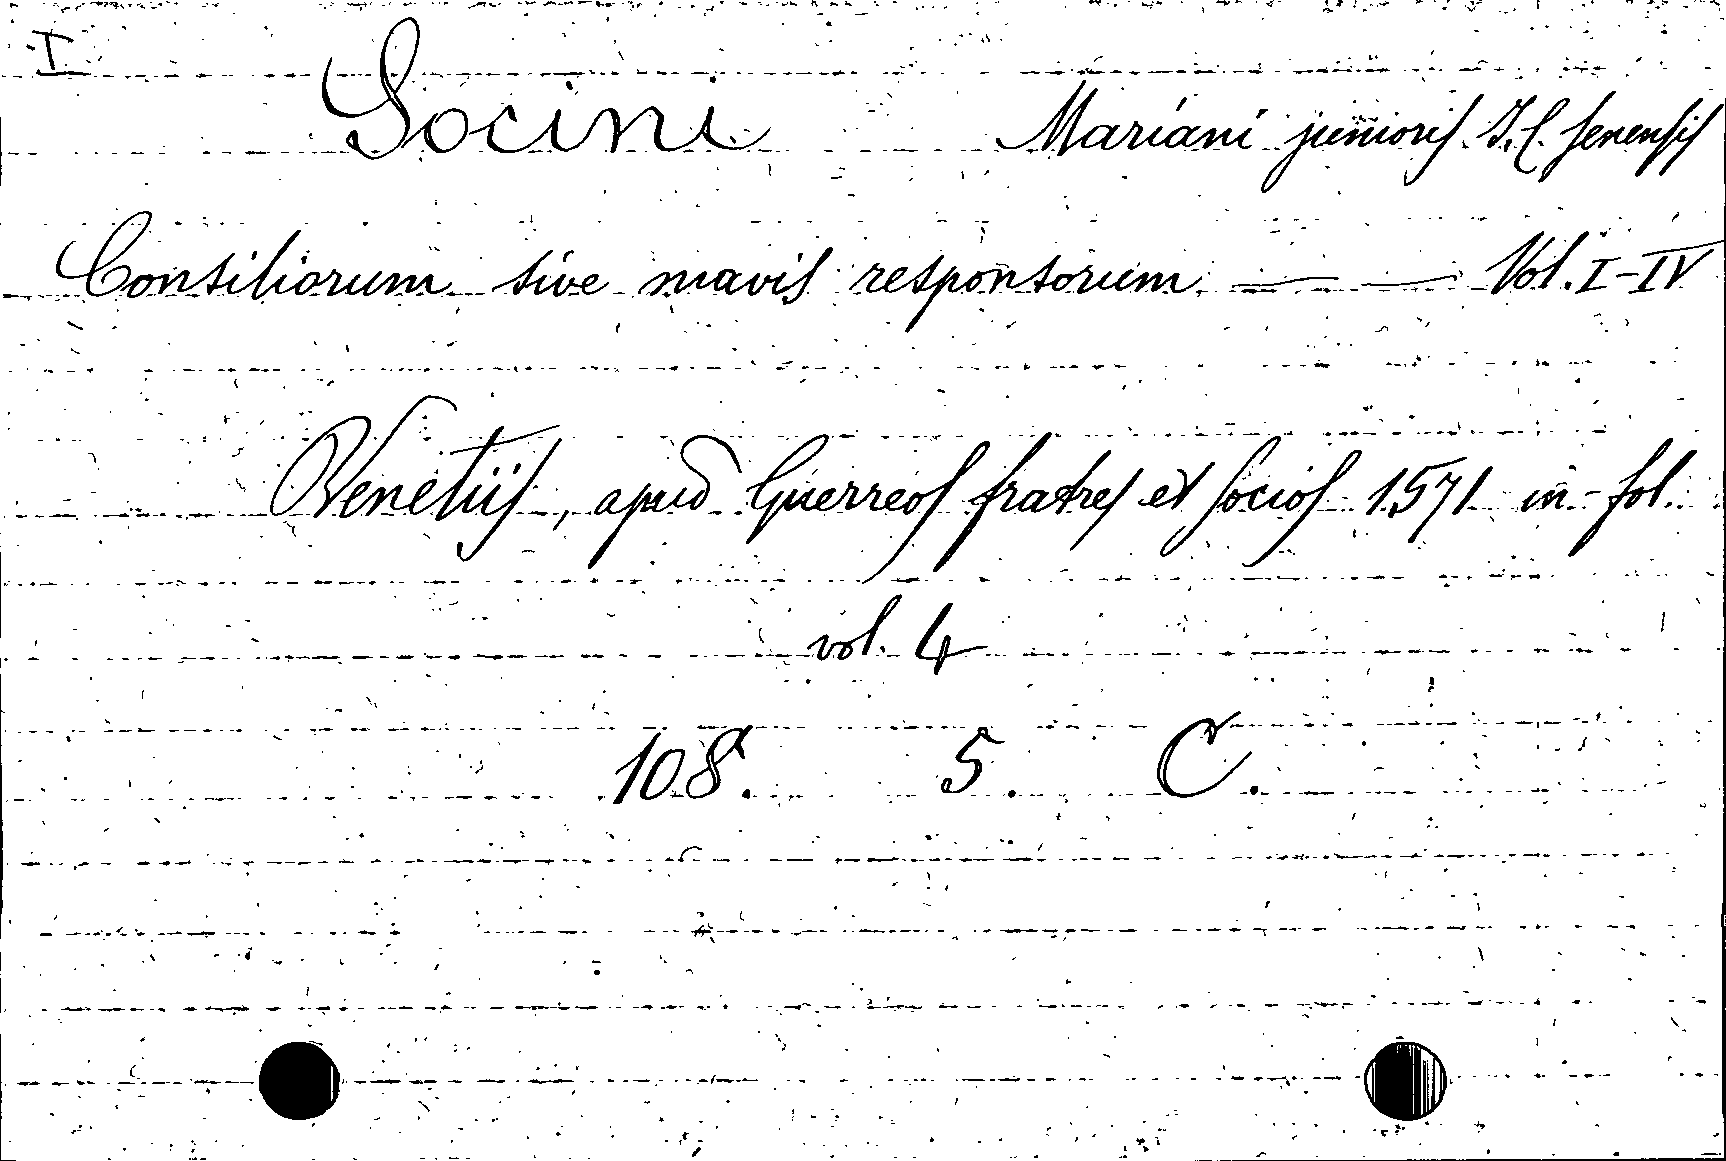 I
Socini Mariani junioris I. C. senensis
Consiliorum sive mavis responsorum — — Vol. I-IV
Venetiis, apud Guerreos fratres et socios 1571 in-fol.
vol. 4
108. 5. C.